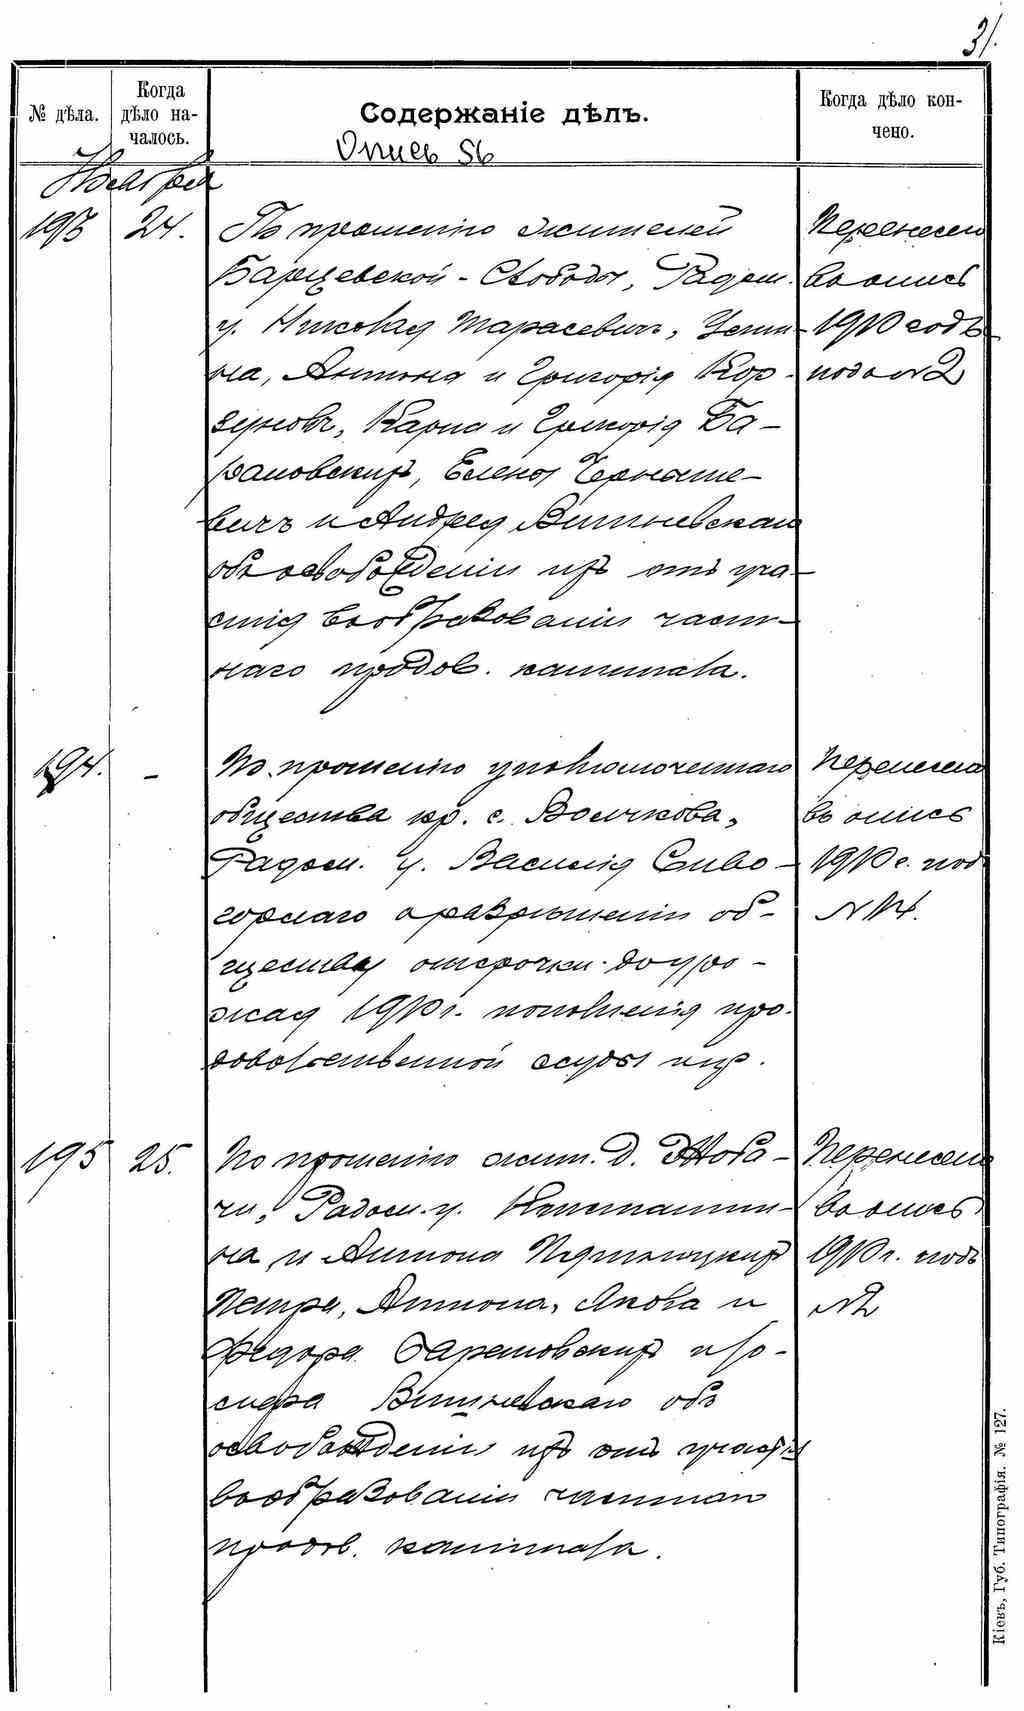 31.
№ дѣла.
Когда
дѣло на-
чалось.
Содержаніе дѣлъ.
Когда дѣло кон-
чено.
Опись 56
Ноября
193 24. По прошенію жителей
Барщевской-Свободы, Радом.
у. Николая Тарасевич, Усти-
на, Антона и Григорія Кор-
зуновъ, Карпа и Григорія Ба-
рановскихъ, Елены Черныше-
вичъ и Андрея Вишневскаго
объ освобожденіи ихъ отъ уча-
стія въ образованіи част-
наго продов. капитала.
Перенесено
въ опись
1910 годъ
подъ №2
194. - По прошенію уполномоченнаго
общества кр. с. Волчкова,
Радом. у. Василія Сиво-
горнаго о разрѣшеніи об-
ществу отсрочки до уро-
жая 1910 г. пополненія про-
довольственной ссуды ихъ.
Перенесено
въ опись
1910 г. подъ
№ 14.
195 25. По прошенію жит. д.
чи, Радом. у. Константи-
на и Антона
Петра, Антона, Якова и
Федора Барановскихъ и Іо-
сифа Вишневскаго объ
освобожденіи ихъ отъ участія
въ образованіи частнаго
продов. капитала.
Перенесено
въ опись
1910 г. подъ
№2
Кіевъ, Губ. Типографія. № 127.